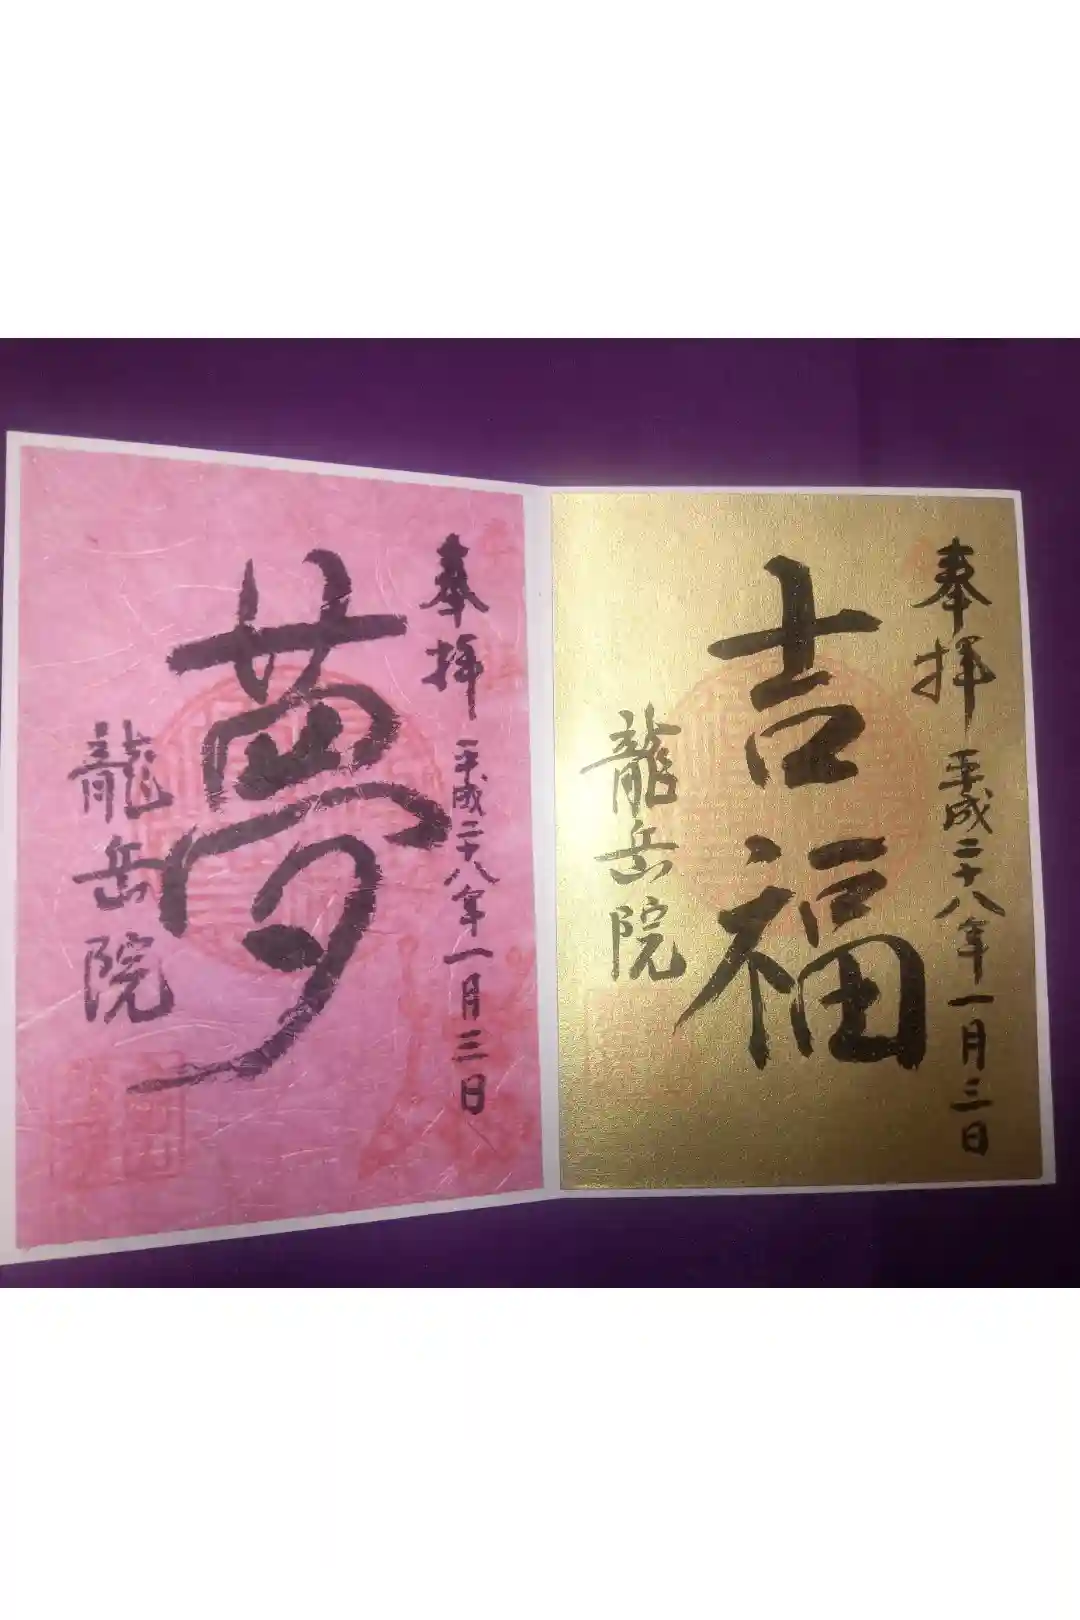 奉拝 平成二十八年一月三日
吉福
龍岳院
奉拝 平成二十八年一月三日
夢
龍岳院